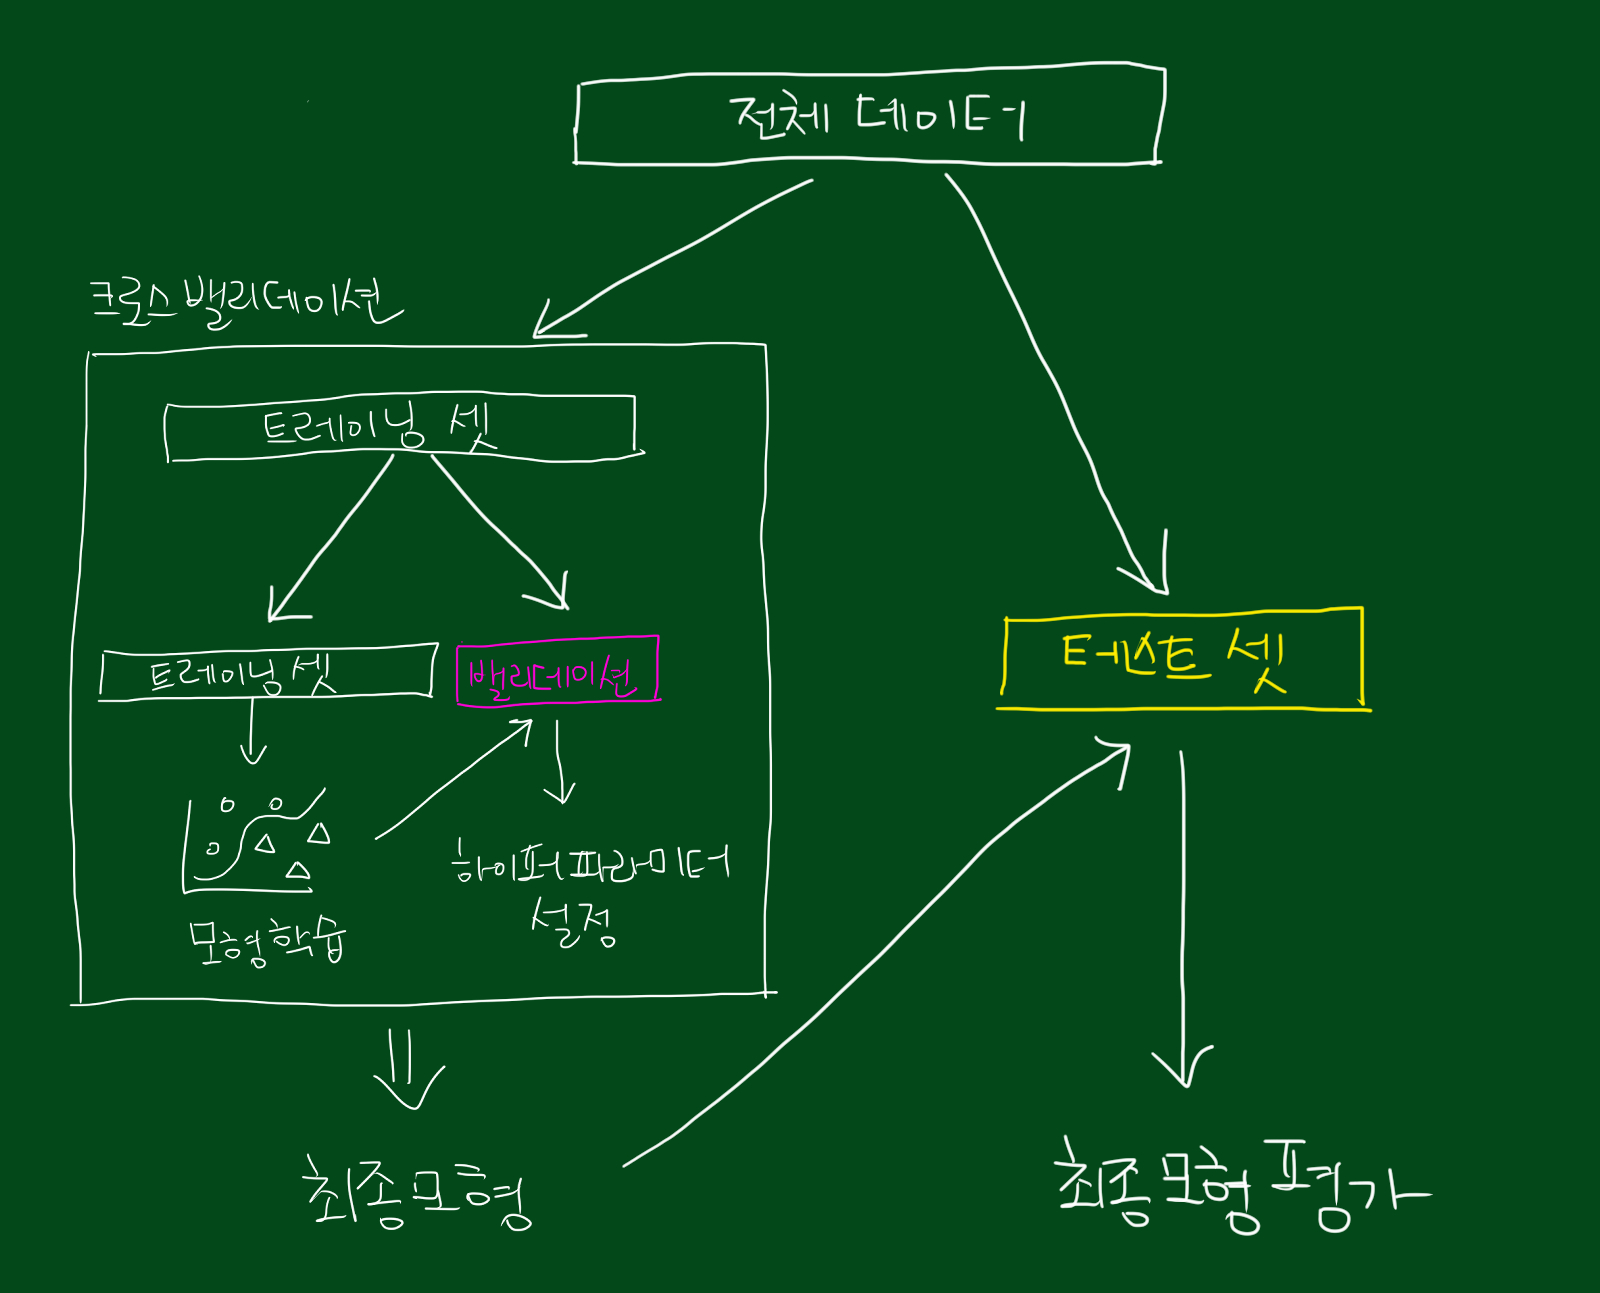 전체 데이터
크로스 밸리데이션
트레이닝 셋
트레이닝 셋
밸리데이션
테스트 셋
모형학습
하이퍼파라미터
설정
최종모형
최종모형 평가